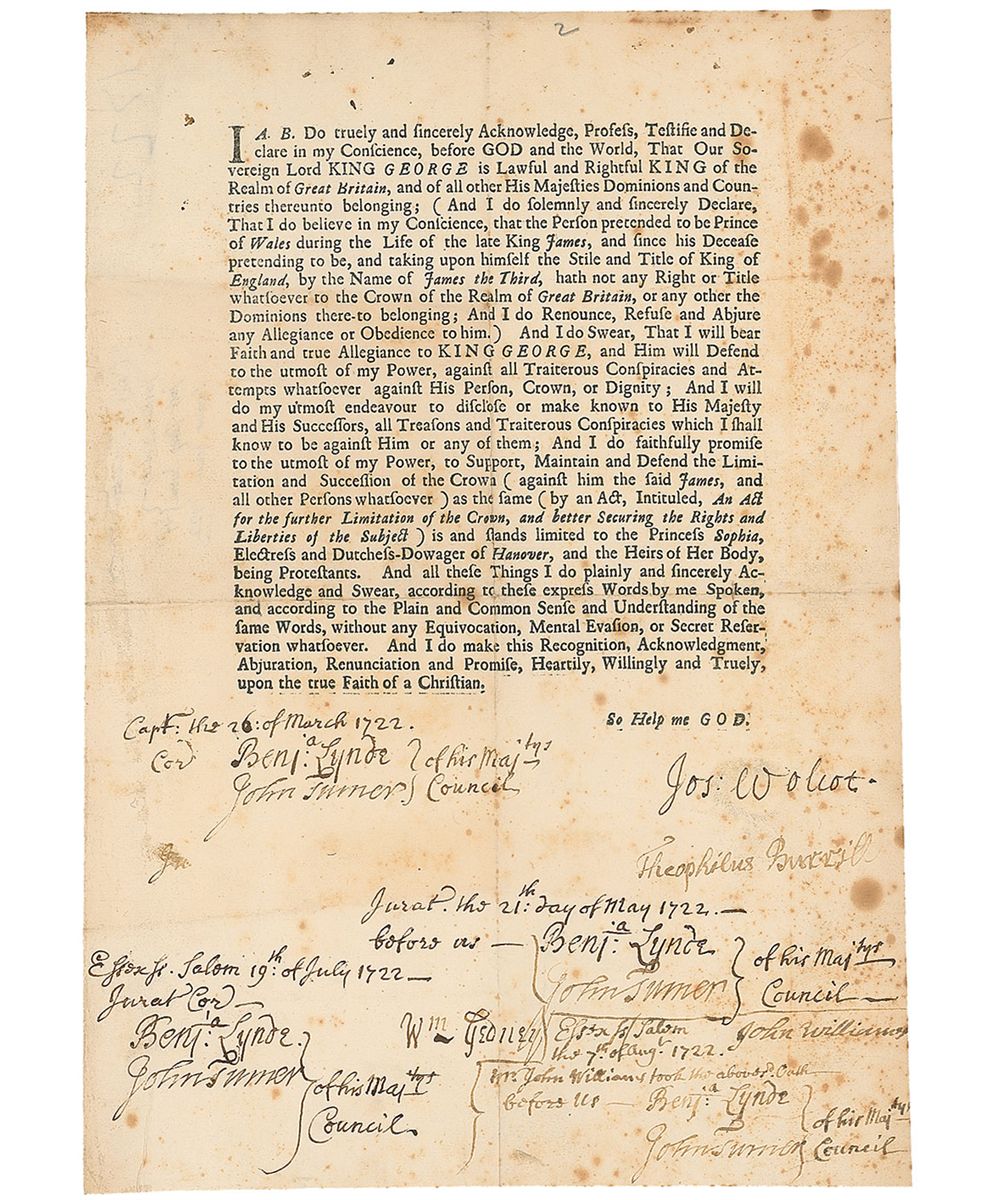 2
I A. B. Do truely and ſincerely Acknowledge, Profeſs, Teſtifie and De-
clare in my Conſcience, before GOD and the World, That Our So-
vereign Lord KING GEORGE is Lawful and Rightful KING of the
Realm of Great Britain, and of all other His Majeſties Dominions and Coun-
tries thereunto belonging; ( And I do ſolemnly and ſincerely Declare,
That I do believe in my Conſcience, that the Perſon pretended to be Prince
of Wales during the Life of the late King James, and ſince his Deceaſe
pretending to be, and taking upon himſelf the Stile and Title of King of
England, by the Name of James the Third, hath not any Right or Title
whatſoever to the Crown of the Realm of Great Britain, or any other the
Dominions there-to belonging; And I do Renounce, Refuſe and Abjure
any Allegiance or Obedience to him.) And I do Swear, That I will bear
Faith and true Allegiance to KING GEORGE, and Him will Defend
to the utmoſt of my Power, againſt all Traiterous Conſpiracies and At-
tempts whatſoever againſt His Perſon, Crown, or Dignity; And I will
do my utmoſt endeavour to diſcloſe or make known to His Majeſty
and His Succeſſors, all Treaſons and Traiterous Conſpiracies which I ſhall
know to be againſt Him or any of them; And I do faithfully promiſe
to the utmoſt of my Power, to Support, Maintain and Defend the Limi-
tation and Succeſſion of the Crown ( againſt him the ſaid James, and
all other Perſons whatſoever ) as the ſame ( by an Act, Intituled, An Act
for the further Limitation of the Crown, and better Securing the Rights and
Liberties of the Subject ) is and ſtands limited to the Princeſs Sophia,
Electreſs and Dutcheſs-Dowager of Hanover, and the Heirs of Her Body,
being Proteſtants. And all theſe Things I do plainly and ſincerely Ac-
knowledge and Swear, according to theſe expreſs Words by me Spoken,
and according to the Plain and Common Senſe and Underſtanding of the
ſame Words, without any Equivocation, Mental Evaſion, or Secret Reſer-
vation whatſoever. And I do make this Recognition, Acknowledgment,
Abjuration, Renunciation and Promiſe, Heartily, Willingly and Truely,
upon the true Faith of a Chriſtian.
So Help me GOD.
Capt: the 26: of March 1722.
Cor Benj:a Lynde } of his Maj:tys
John Turner } Council
Jos: Wolcot.
Theophilus Burrill
Jurat. the 21:th day of May 1722.—
before us — Benj:a Lynde } of his Maj:tys
John Turner } Council —
Essex ss. Salem 19:th of July 1722—
Jurat Cor —
Benj:a Lynde.
John Turner } of his Maj:tys
Council.
Wm Gedney
Essex ss Salem John Williams
the 7:th of Augt. 1722.
Mr. John Williams took the above Oath
before us — Benj:a Lynde } of his Maj:tys
John Turner } Council